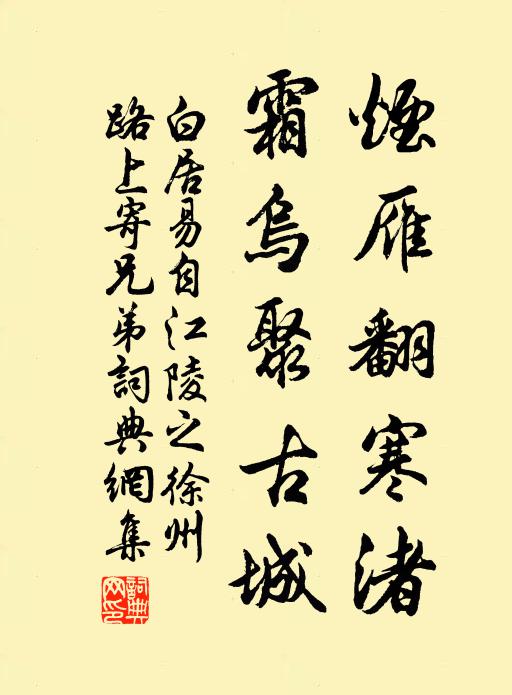 煙雁翻寒渚
霜烏聚古城
白居易自江陵之徐州
路上寄兄弟詞典網集
詞典網印